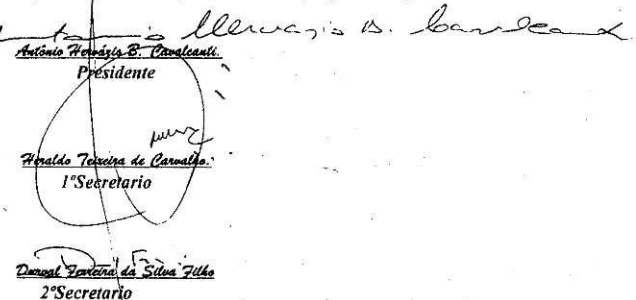 Antonio Hervazio B. Cavalcanti
Antônio Hervázio B. Cavalcanti.
Presidente
Heraldo Teixeira de Carvalho.
1ºSecretario
Durval Ferreira da Silva Filho
2ºSecretario